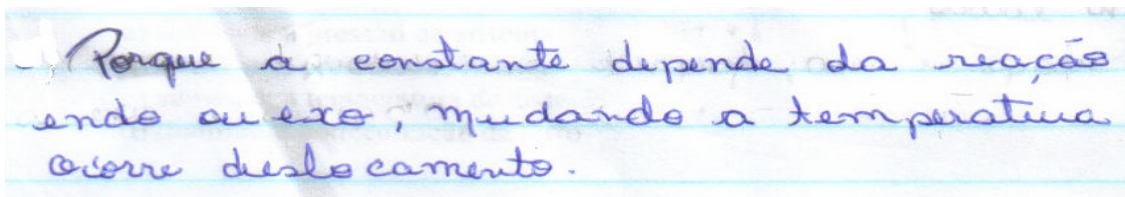 - Porque a constante depende da reação
endo ou exo, mudando a temperatura
ocorre deslocamento.